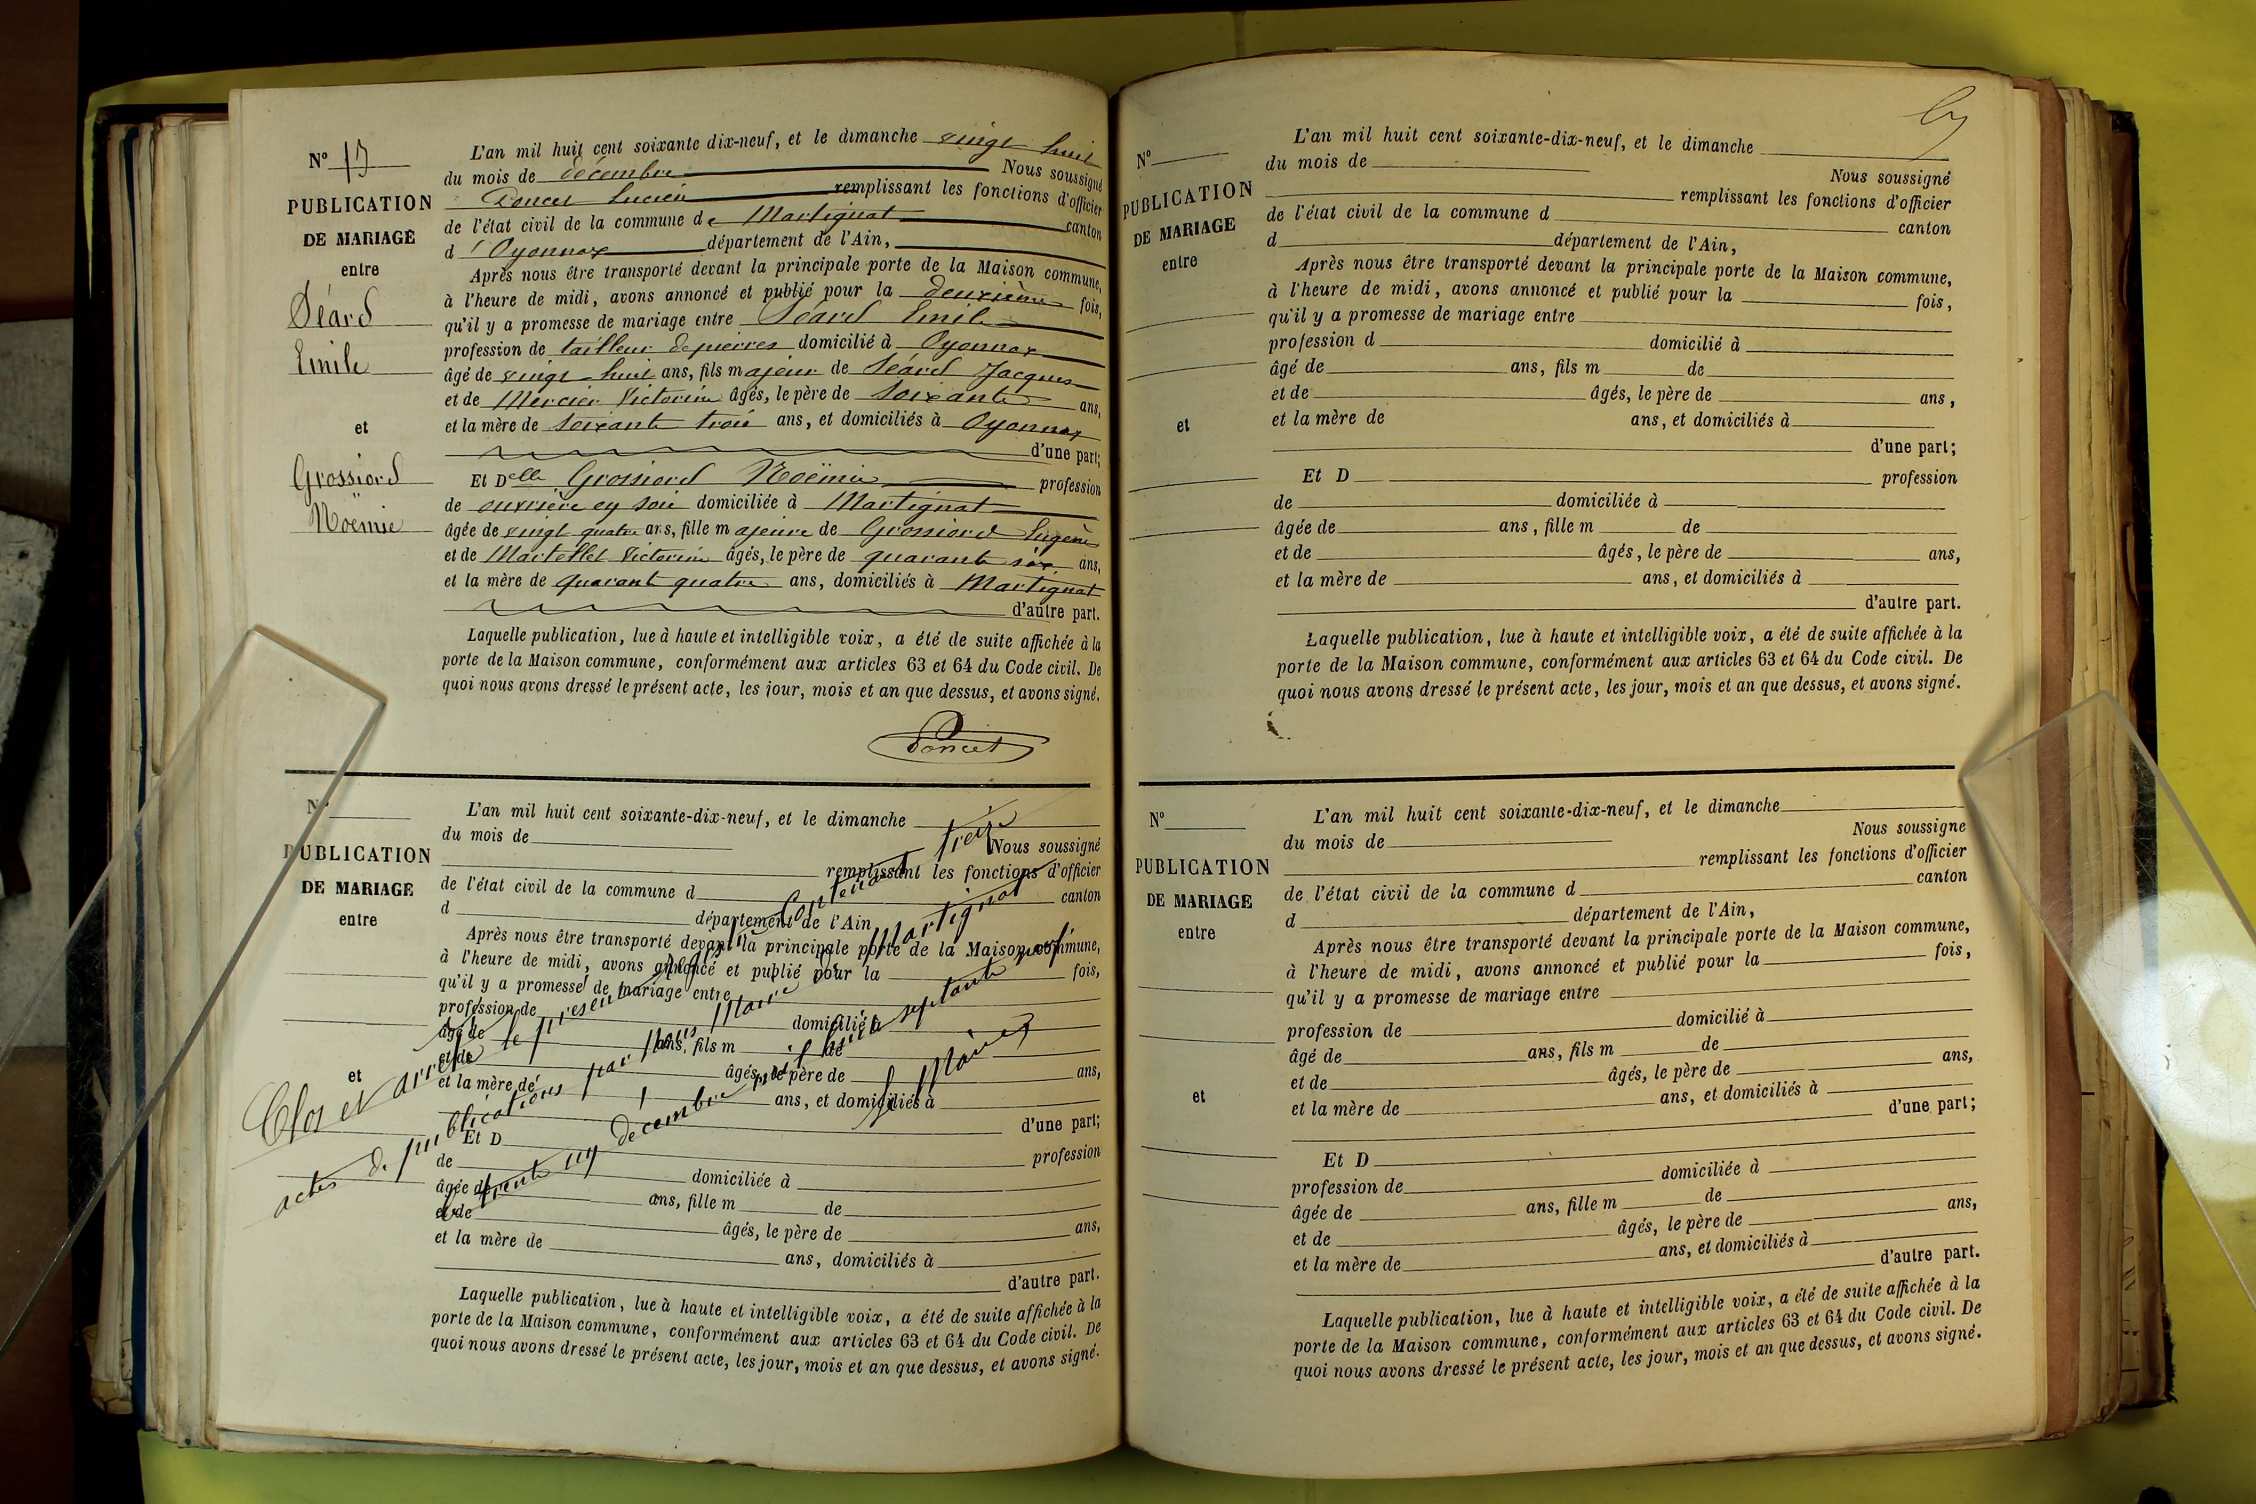 N° 13
PUBLICATION
DE MARIAGE
entre
Séard
Emile
et
Grossiord
Noëmie
L'an mil huit cent soixante dix-neuf, et le dimanche vingt huit
du mois de décembre Nous soussigné
Poncet Lucien remplissant les fonctions d'officier
de l'état civil de la commune de Martignat canton
d'Oyonnax département de l'Ain,
Après nous être transporté devant la principale porte de la Maison commune,
à l'heure de midi, avons annoncé et publié pour la deuxième fois,
qu'il y a promesse de mariage entre Séard Emile
profession de tailleur de pierres domicilié à Oyonnax
âgé de vingt-huit ans, fils majeur de Séard Jacques
et de Mercier Victorine âgés, le père de soixante ans,
et la mère de soixante trois ans, et domiciliés à Oyonnax
d'une part;
Et Delle Grossiord Noëmie profession
de ouvrière en soie domiciliée à Martignat
âgée de vingt quatre ans, fille majeure de Grossiord Eugène
et de Martellet Victorine âgés, le père de quarante six ans,
et la mère de quarante quatre ans, domiciliés à Martignat
d'autre part.
Laquelle publication, lue à haute et intelligible voix, a été de suite affichée à la
porte de la Maison commune, conformément aux articles 63 et 64 du Code civil. De
quoi nous avons dressé le présent acte, les jour, mois et an que dessus, et avons signé.
Poncet
N°
PUBLICATION
DE MARIAGE
entre
et
L'an mil huit cent soixante-dix-neuf, et le dimanche
du mois de
Nous soussigné
remplissant les fonctions d'officier
de l'état civil de la commune d
canton
d département de l'Ain
Après nous être transporté devant la principale porte de la Maison commune,
à l'heure de midi, avons annoncé et publié pour la fois,
qu'il y a promesse de mariage entre
profession de domicilié à
âgé de ans, fils m de
et de âgés, le père de ans,
et la mère de ans, et domiciliés à
d'une part;
Et D profession
de domiciliée à
âgée de ans, fille m de
et de âgés, le père de ans,
et la mère de ans, domiciliés à
d'autre part.
Laquelle publication, lue à haute et intelligible voix, a été de suite affichée à la
porte de la Maison commune, conformément aux articles 63 et 64 du Code civil. De
quoi nous avons dressé le présent acte, les jour, mois et an que dessus, et avons signé.
Clos et arrêté le présent contenant treize
actes de publications par Nous Maire de Martignat
le trente un décembre mil huit septante neuf
Le Maire
N°
PUBLICATION
DE MARIAGE
entre
et
L'an mil huit cent soixante-dix-neuf, et le dimanche
du mois de
Nous soussigné
remplissant les fonctions d'officier
de l'état civil de la commune d
canton
d département de l'Ain,
Après nous être transporté devant la principale porte de la Maison commune,
à l'heure de midi, avons annoncé et publié pour la fois,
qu'il y a promesse de mariage entre
profession d domicilié à
âgé de ans, fils m de
et de âgés, le père de ans,
et la mère de ans, et domiciliés à
d'une part;
Et D profession
de domiciliée à
âgée de ans, fille m de
et de âgés, le père de ans,
et la mère de ans, et domiciliés à
d'autre part.
Laquelle publication, lue à haute et intelligible voix, a été de suite affichée à la
porte de la Maison commune, conformément aux articles 63 et 64 du Code civil. De
quoi nous avons dressé le présent acte, les jour, mois et an que dessus, et avons signé.
N°
PUBLICATION
DE MARIAGE
entre
et
L'an mil huit cent soixante-dix-neuf, et le dimanche
du mois de
Nous soussigne
remplissant les fonctions d'officier
de l'état civil de la commune d
canton
d département de l'Ain,
Après nous être transporté devant la principale porte de la Maison commune,
à l'heure de midi, avons annoncé et publié pour la fois,
qu'il y a promesse de mariage entre
profession de domicilié à
âgé de ans, fils m de
et de âgés, le père de ans,
et la mère de ans, et domiciliés à
d'une part;
Et D
profession de domiciliée à
âgée de ans, fille m de
et de âgés, le père de ans,
et la mère de ans, et domiciliés à
d'autre part.
Laquelle publication, lue à haute et intelligible voix, a été de suite affichée à la
porte de la Maison commune, conformément aux articles 63 et 64 du Code civil. De
quoi nous avons dressé le présent acte, les jour, mois et an que dessus, et avons signé.